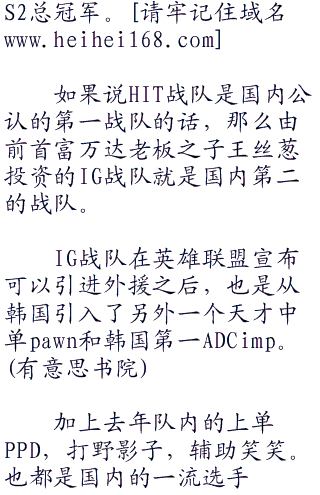 S2总冠军。[请牢记住域名
www.heihei168.com]
如果说HIT战队是国内公
认的第一战队的话，那么由
前首富万达老板之子王丝葱
投资的IG战队就是国内第二
的战队。
IG战队在英雄联盟宣布
可以引进外援之后，也是从
韩国引入了另外一个天才中
单pawn和韩国第一ADCimp。
(有意思书院)
加上去年队内的上单
PPD，打野影子，辅助笑笑。
也都是国内的一流选手